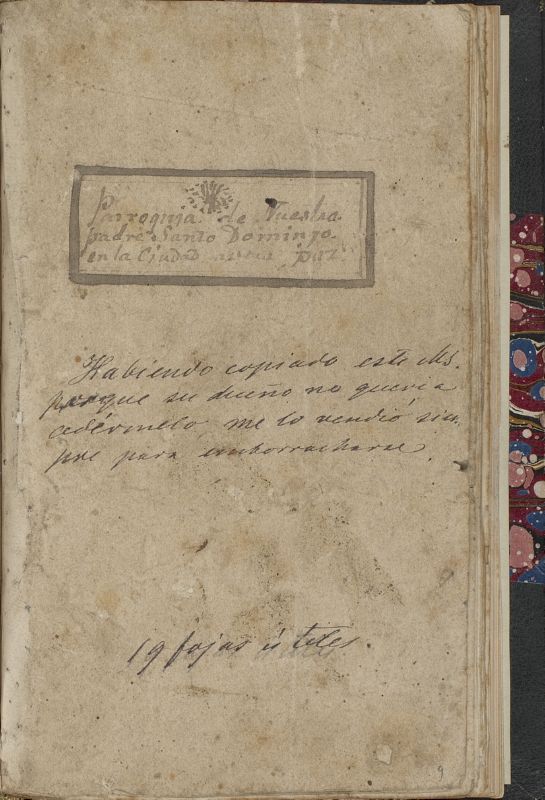 Parroquia de Nuestra
padre Santo Domingo
en la Ciudad
Habiendo copiado este Ms.
porque su dueño no queria
cedérmelo me lo vendió siem
pre para emborracharse.
19 fojas útiles.
9